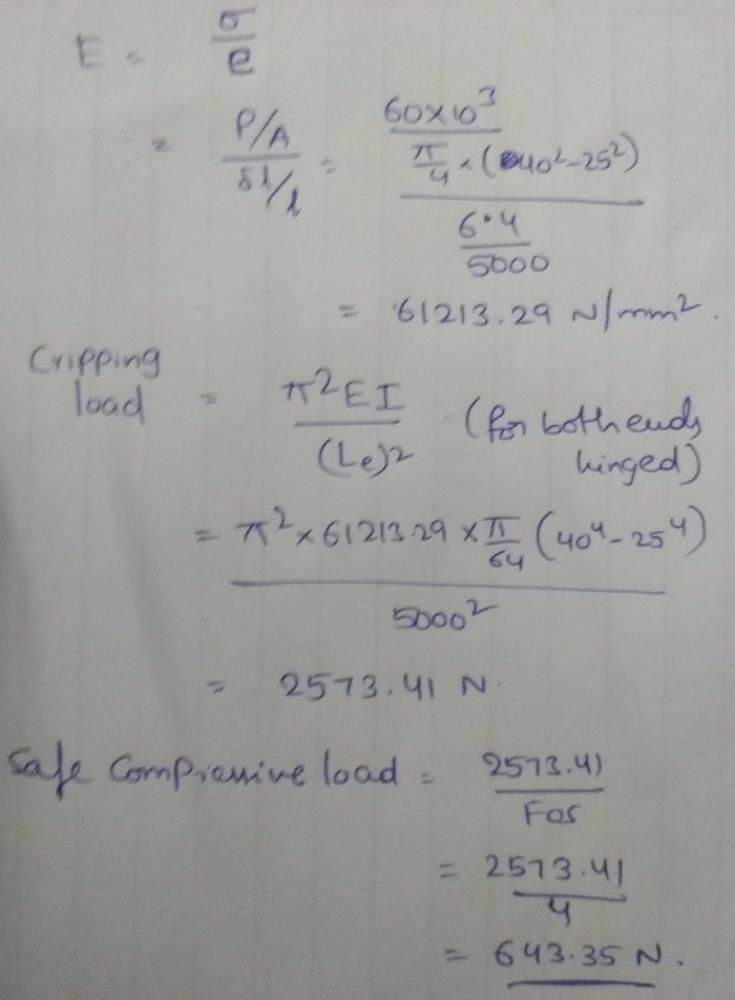 E = σ/e
= (P/A)/(δl/l) = (60×10³/(π/4 × (40²-25²)))/(6.4/5000)
= 61213.29 N/mm².
Cripping load = π²EI/(Le)² (for both ends hinged)
= (π² × 61213.29 × π/64 (40⁴-25⁴))/5000²
= 2573.41 N.
Safe Compressive load = 2573.41/FOS
= 2573.41/4
= 643.35 N.